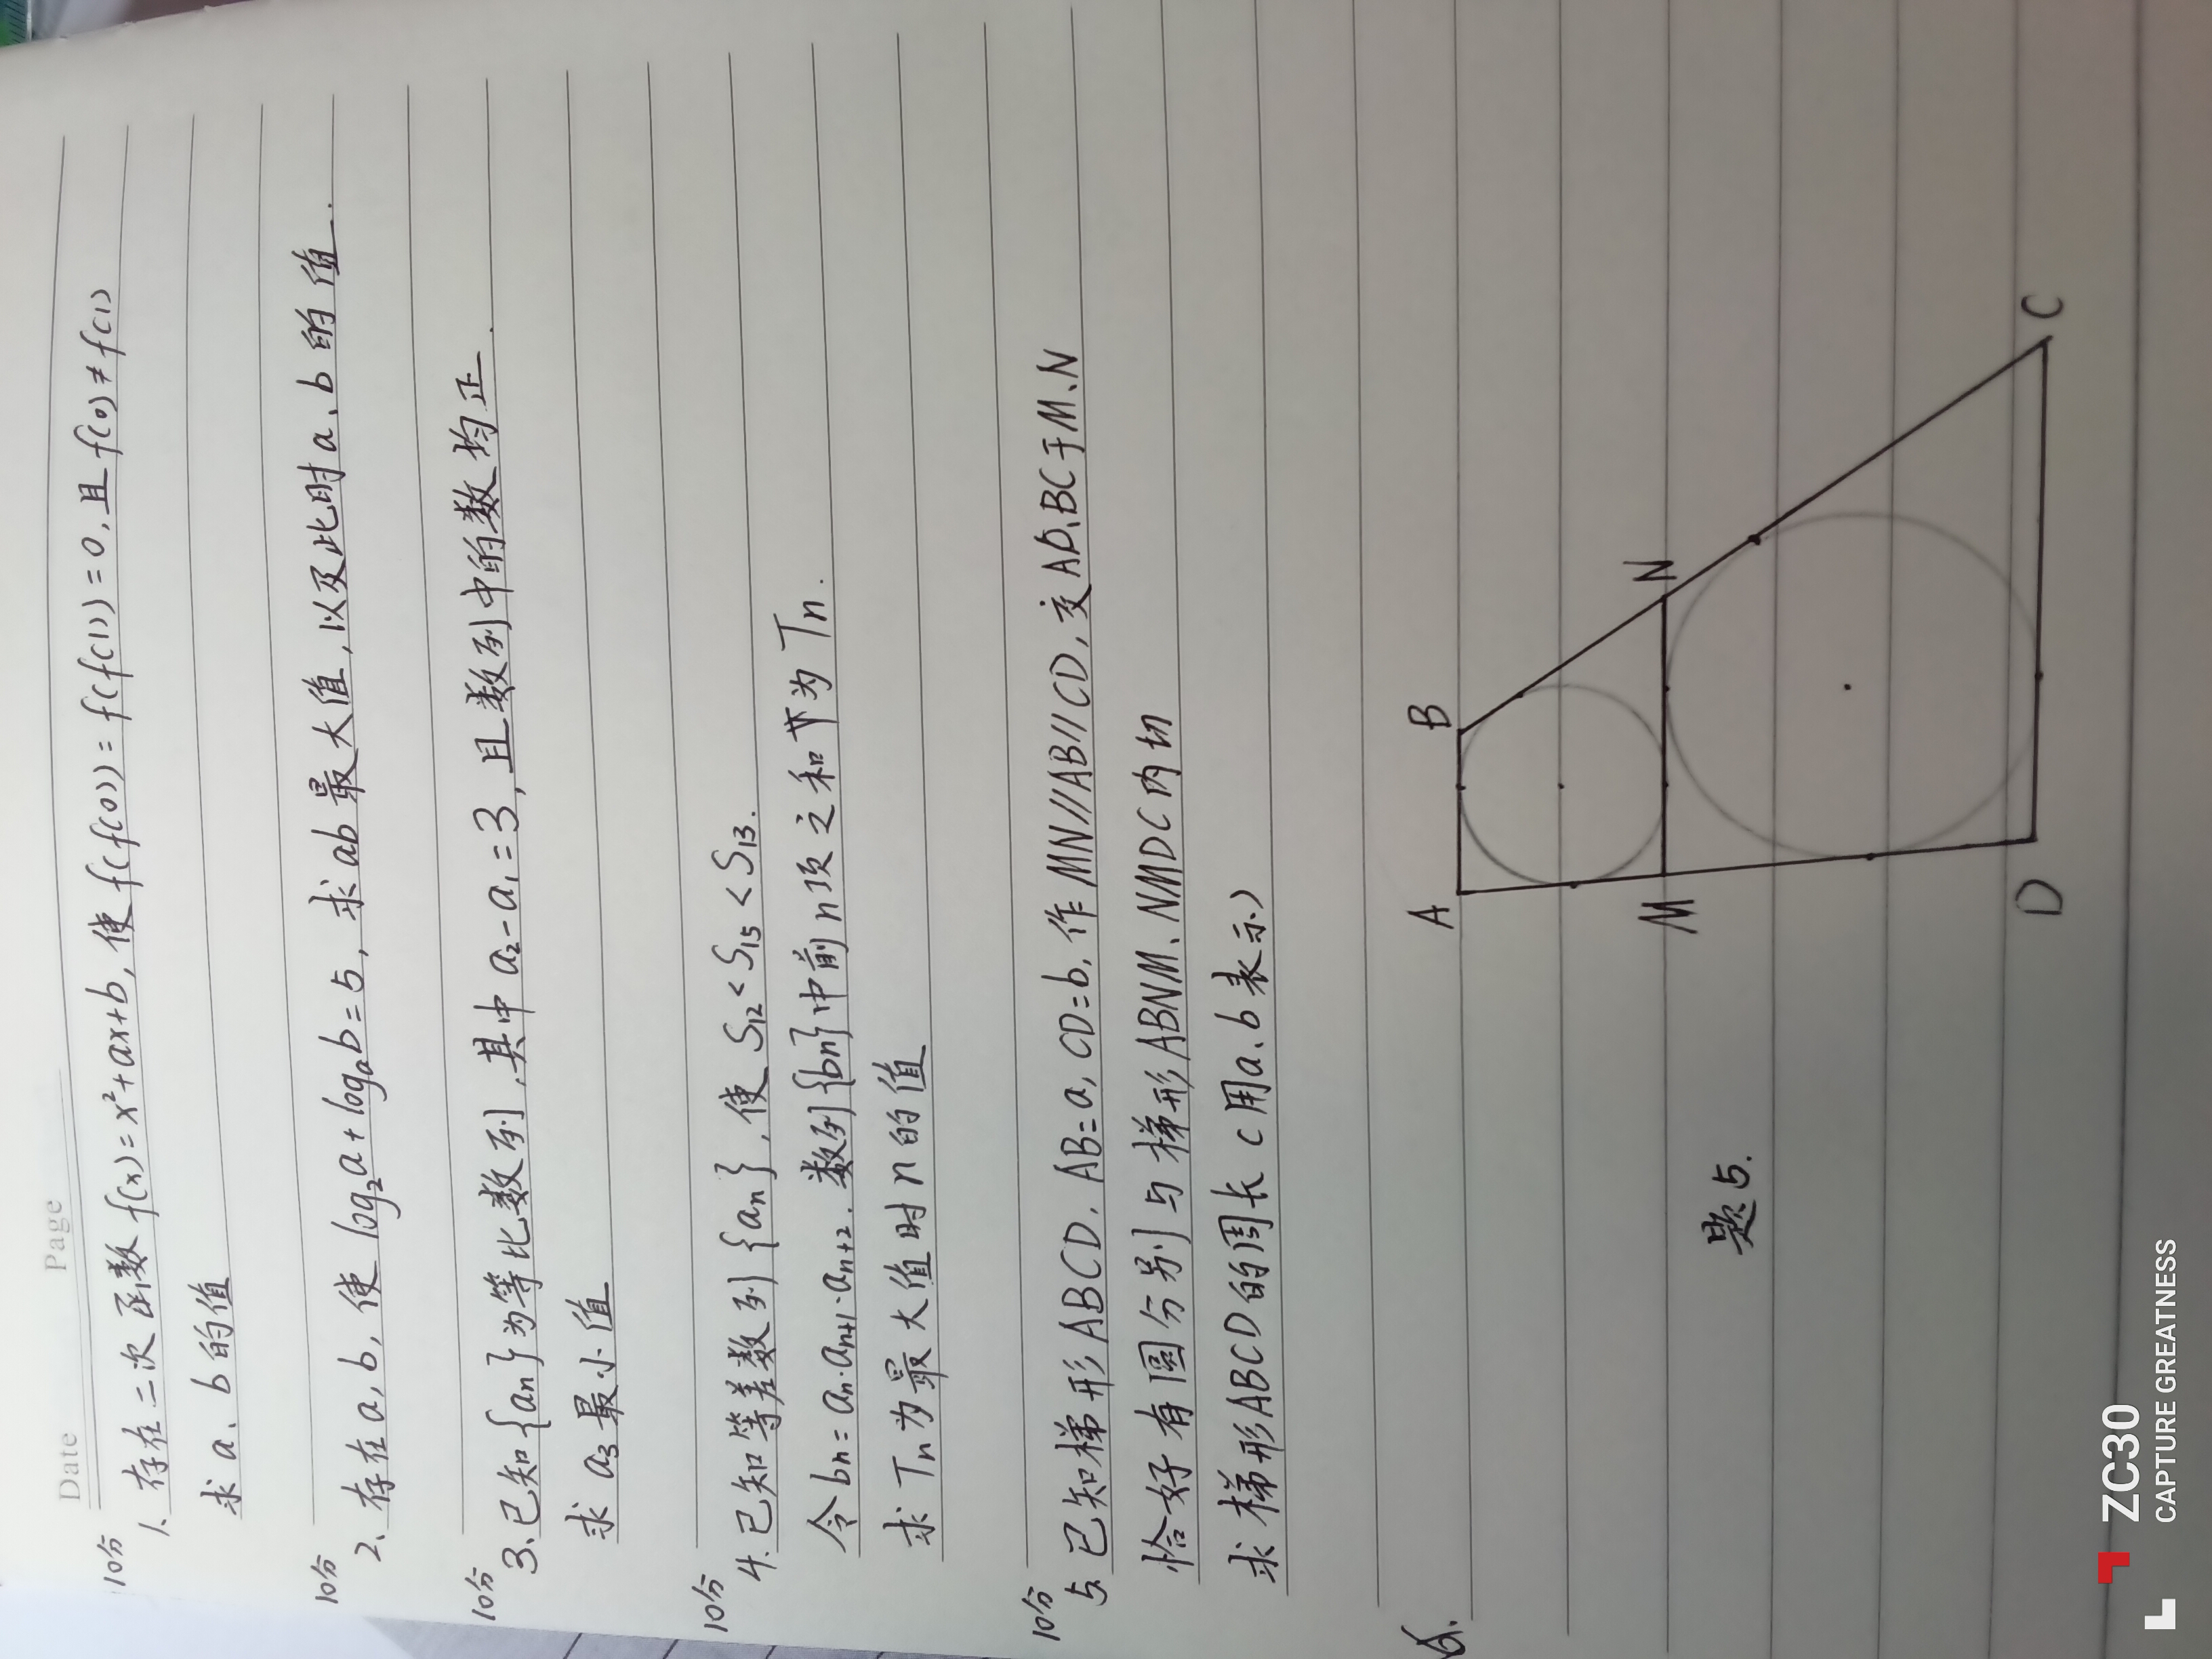 Date Page
10分
1、存在二次函数 f(x)=x²+ax+b, 使 f(f(0))=f(f(1))=0, 且 f(0)≠f(1)
求 a、b 的值
10分
2、存在 a, b, 使 log₂a+logₐb=5, 求 ab 最大值, 以及此时 a、b 的值.
10分
3、已知{an}为等比数列, 其中 a₂-a₁=3, 且数列中的数均正.
求 a₃ 最小值
10分
4. 已知等差数列{an}, 使 S₁₂<S₁₅<S₁₃.
令 bn=an·an+1·an+2. 数列{bn}中前n项之和为 Tn.
求 Tn 为最大值时 n 的值
10分
5. 已知梯形 ABCD. AB=a, CD=b, 作 MN//AB//CD, 交 AD、BC于 M、N
恰好有圆分别与梯形 ABNM、NMDC 内切
求梯形ABCD的周长 (用 a、b 表示)
6.
A B
M N
D C
题5.
ZC30
CAPTURE GREATNESS